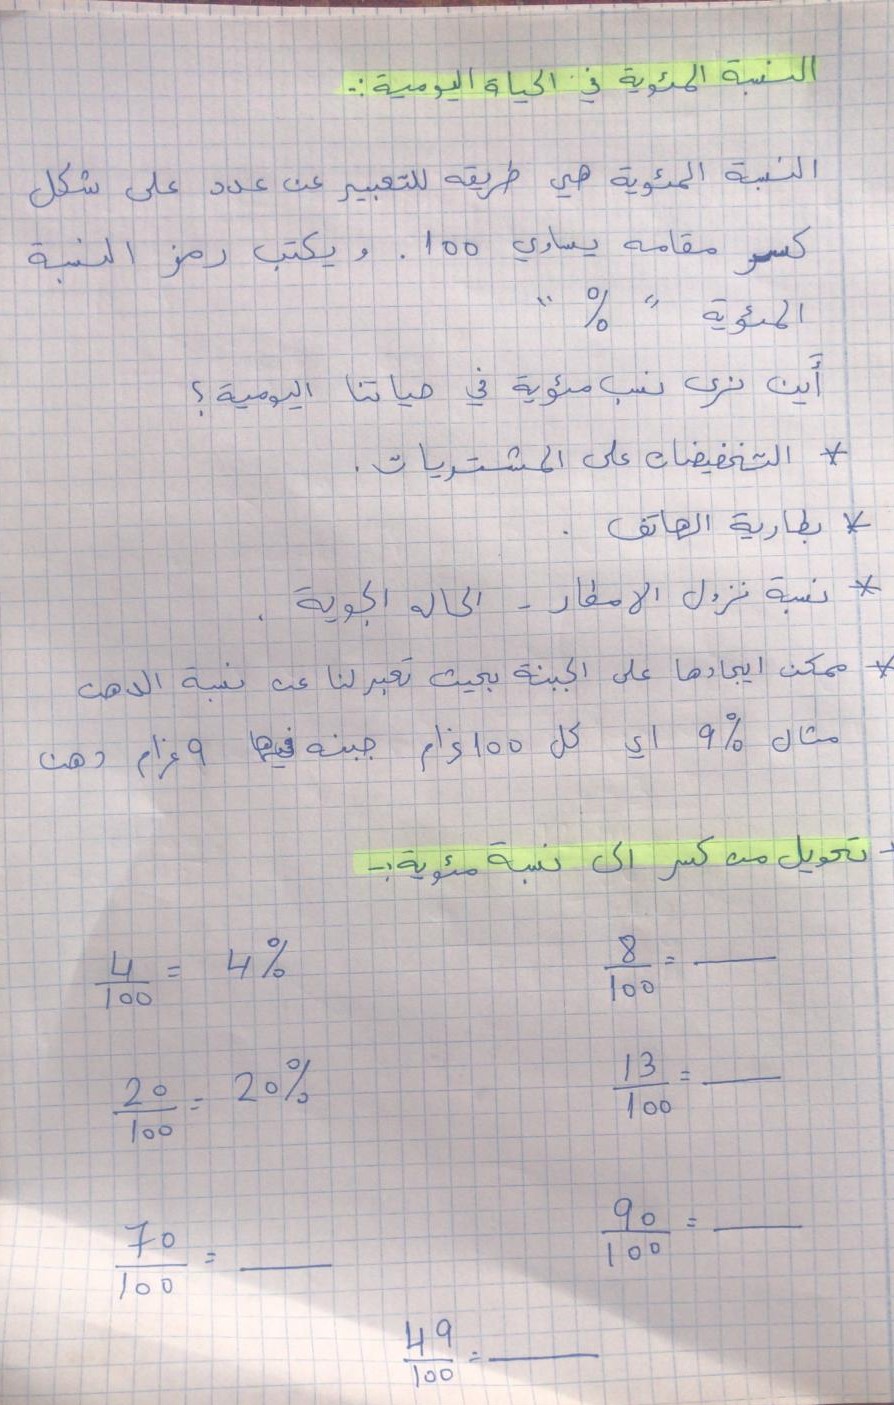 النسبة المئوية في الحياة اليومية :-
النسبة المئوية هي طريقه للتعبير عن عدد على شكل
كسر مقامه يساوي 100 . ويكتب رمز النسبة
المئوية " % "
أين نرى نسب مئوية في حياتنا اليومية ؟
* التخفيضات على المشتريات .
* بطارية الهاتف .
* نسبة نزول الامطار - الحاله الجوية .
* ممكن ايجادها على الجبنة بحيث تعبر لنا عن نسبة الدهن
مثال 9% اي كل 100 غرام جبنه فيها 9 غرام دهن
- تحويل من كسر الى نسبة مئوية :-
4/100 = 4%
8/100 = ____
20/100 = 20%
13/100 = ____
70/100 = ____
90/100 = ____
49/100 = ____